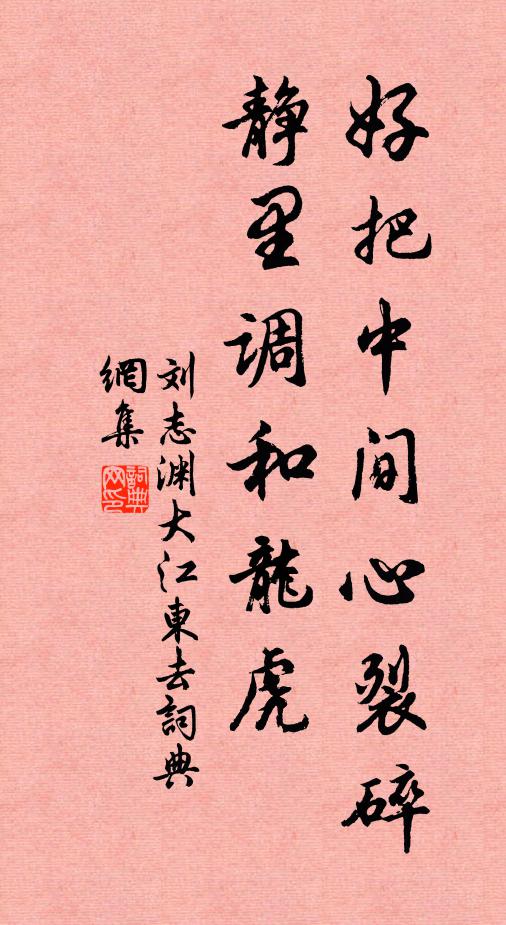 好把中间心裂碎
静里调和龍虎
刘志渊大江東去詞典
網集
詞典网印